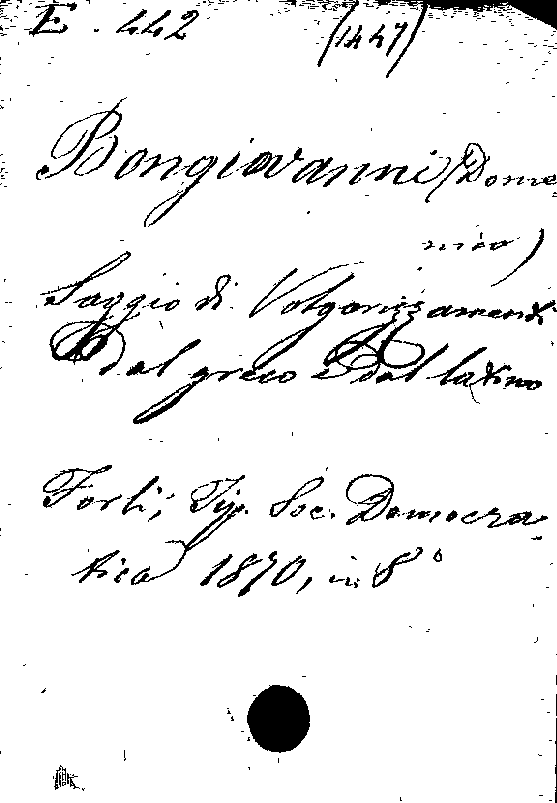 E. 442 (1447)
Bongiovanni (Dome-
nico)
Saggio di Volgarizzamenti
dal greco e dal latino
Forlì; Tip. Soc. Democra-
tica 1870, in 8°